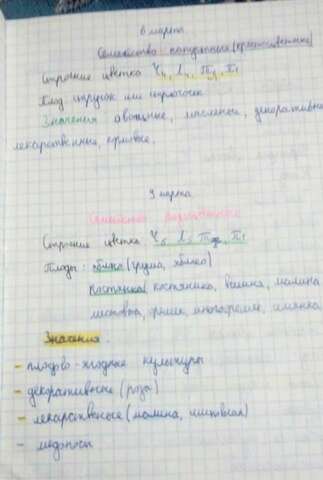 6 марта
Семейство капустные (крестоцветные)
Строение цветка Ч4, Л4, Т, П1
Плод стручок или стручочек
Значения овощные, масленые, декоративные
лекарственные, кормовые.
9 марта
Семейство
Строение цветка Ч5 Л5 Т П1
Плоды: яблоко (груша, яблоко)
костянка (костяника, вишня, малина
многоорешек,
Значения.
- плодово-ягодные культуры
- декоративные (роза)
- лекарственные (малина,
- медоносы